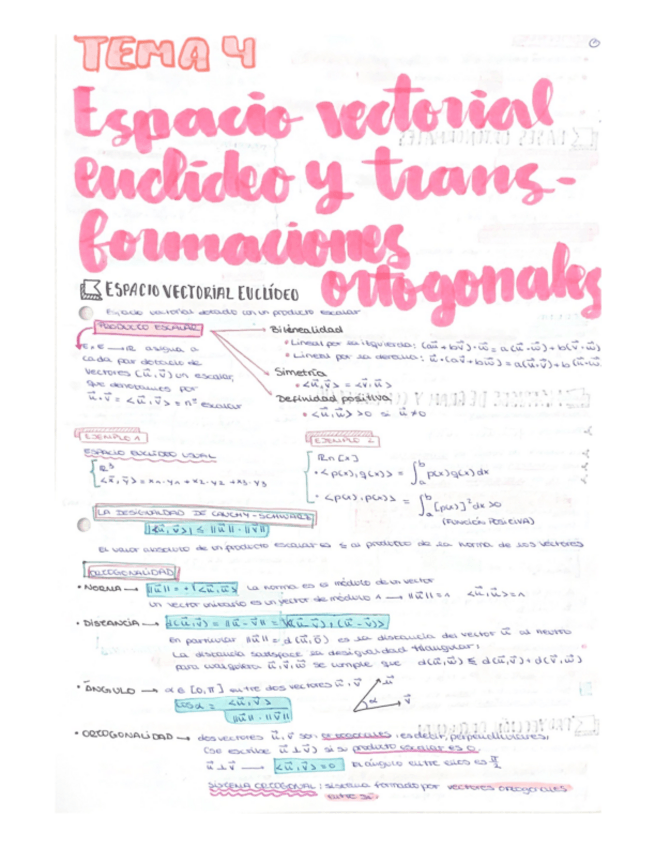 TEMA 4
①
Espacio vectorial
euclídeo y trans-
formaciones
ortogonales
ESPACIO VECTORIAL EUCLÍDEO
Espacio vectorial dotado con un producto escalar
PRODUCTO ESCALAR
ExE → R asigna a
cada par de
vectores (ū, v̄) un escalar,
que denotamos por
ū·v̄ = <ū, v̄> = nº escalar
Bilinealidad
• Lineal por la izquierda: (aū + bv̄)·w̄ = a(ū·w̄) + b(v̄·w̄)
• Lineal por la derecha: ū·(av̄ + bw̄) = a(ū·v̄) + b(ū·w̄
Simetría
• <ū, v̄> = <v̄, ū>
Definidad positiva
• <ū, ū> > 0 si ū ≠ 0
EJEMPLO 1
ESPACIO EUCLÍDEO USUAL
R³
<x̄, ȳ> = x₁·y₁ + x₂·y₂ + x₃·y₃
EJEMPLO 2
Rn[x]
• <p(x), q(x)> = ∫ₐᵇ p(x)q(x)dx
• <p(x), p(x)> = ∫ₐᵇ [p(x)]² dx >0
(FUNCIÓN POSITIVA)
LA DESIGUALDAD DE CAUCHY-SCHWARZ
|<ū, v̄>| ≤ ||ū||·||v̄||
El valor absoluto de un producto escalar es ≤ al producto de la norma de los vectores
ORTOGONALIDAD
• NORMA → ||ū|| = +√<ū, ū> La norma es el módulo de un vector
Un vector unitario es un vector de módulo 1 → ||ū|| = 1 <ū, ū> = 1
• DISTANCIA → d(ū, v̄) = ||ū - v̄|| = √<(ū - v̄), (ū - v̄)>
En particular ||ū|| = d(ū, ō) es la distancia del vector ū al neutro
La distancia satisface la desigualdad triangular:
para cualquiera ū, v̄, w̄ se cumple que d(ū, w̄) ≤ d(ū, v̄) + d(v̄, w̄)
• ÁNGULO → α ∈ [0, π] entre dos vectores ū, v̄
ū
α
v̄
cos α = <ū, v̄> / ||ū||·||v̄||
• ORTOGONALIDAD → dos vectores ū, v̄ son ortogonales, es decir, perpendiculares,
(se escribe ū ⊥ v̄) si su producto escalar es 0.
ū ⊥ v̄ → <ū, v̄> = 0 El ángulo entre ellos es π/2
SISTEMA ORTOGONAL: sistema formado por vectores ortogonales
entre sí.